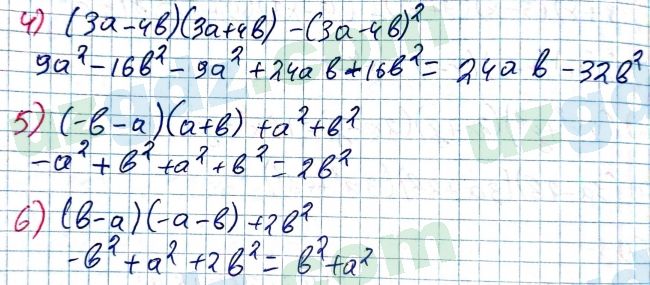 4) (3a-4b)(3a+4b) -(3a-4b)²
9a²-16b²-9a²+24ab-16b²= 24ab-32b²
5) (-b-a)(a+b)+a²+b²
-a²+b²+a²+b²=2b²
6) (b-a)(-a-b)+2b²
-b²+a²+2b²=b²+a²